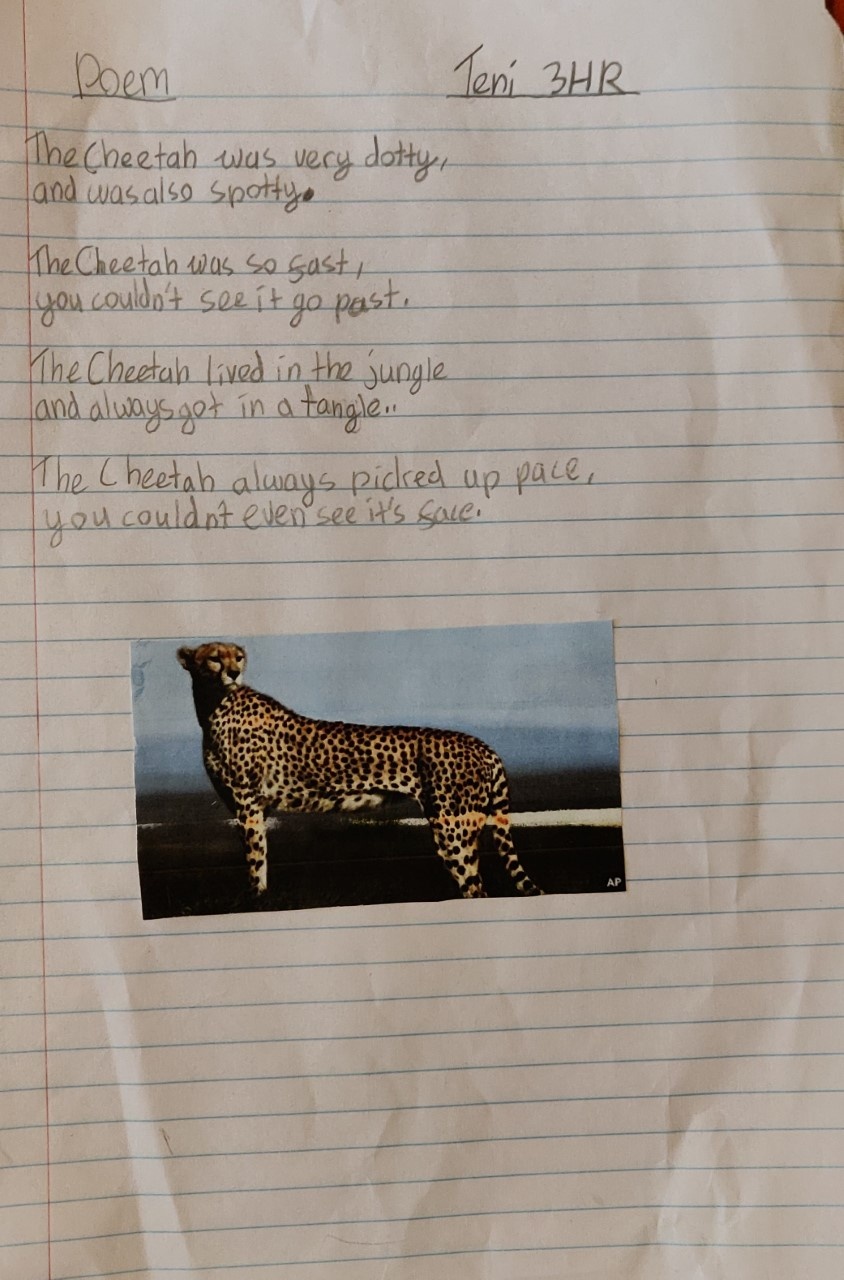 Poem Teni 3HR
The Cheetah was very dotty,
and was also spotty.
The Cheetah was so fast,
you couldn't see it go past.
The Cheetah lived in the jungle
and always got in a tangle..
The Cheetah always picked up pace,
you couldnt even see it's face.
AP